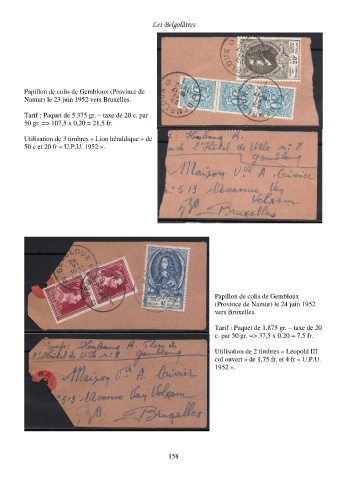 Les Belgolâtres
Papillon de colis de Gembloux (Province de
Namur) le 23 juin 1952 vers Bruxelles.
Tarif : Paquet de 5.375 gr. – taxe de 20 c. par
50 gr. => 107,5 x 0,20 = 21,5 fr.
Utilisation de 3 timbres « Lion héraldique » de
50 c et 20 fr « U.P.U. 1952 ».
A.
l'Hôtel de Ville n: 8
gembloux
Maison Vve A
n° 513 Avenue Van
Volxem
Bruxelles
Papillon de colis de Gembloux
(Province de Namur) le 24 juin 1952
vers Bruxelles.
Tarif : Paquet de 1.875 gr. – taxe de 20
c. par 50 gr. => 37,5 x 0,20 = 7,5 fr.
Utilisation de 2 timbres « Léopold III
col ouvert » de 1,75 fr. et 4 fr « U.P.U.
1952 ».
l'Hôtel de Ville n: 8 gembloux
Maison Vve A.
n° 513 Avenue Van Volxem
Bruxelles
158